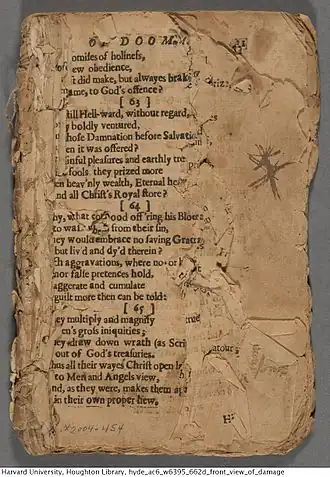 O DOOM.
omises of holiness,
ew obedience,
t did make, but alwayes brake
ame, to God's offence?
[ 63 ]
till Hell-ward, without regard,
boldly ventured,
hose Damnation before Salvatio
en it was offered?
inful pleasures and earthly tre
fools they prized more
en heav'nly wealth, Eternal he
nd all Christ's Royal store?
[ 64 ]
hy, what stood off'ring his Bloo
to wa from their sin,
ey would embrace no saving Grace
but liv'd and dy'd therein?
ch aggravations, where no
nor false pretences hold,
aggerate and cumulate
guilt more then can be told:
[ 65 ]
ey multiply and magnify
en's gross iniquities;
ey draw down wrath (as Scri
out of God's treasuries.
hus all their wayes Christ open l
to Men and Angels view,
nd, as they were, makes them a
in their own proper hew.
*2004-454
Harvard University, Houghton Library, hyde_ac6_w6395_662d_front_view_of_damage